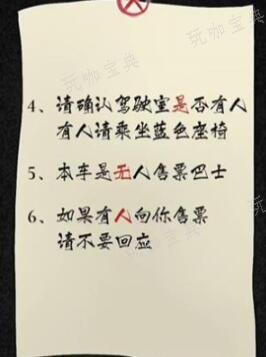 4、请确认驾驶室是否有人
有人请乘坐蓝色座椅
5、本车是无人售票巴士
6、如果有人向你售票
请不要回应
玩咖宝典
玩咖宝典
玩咖宝典